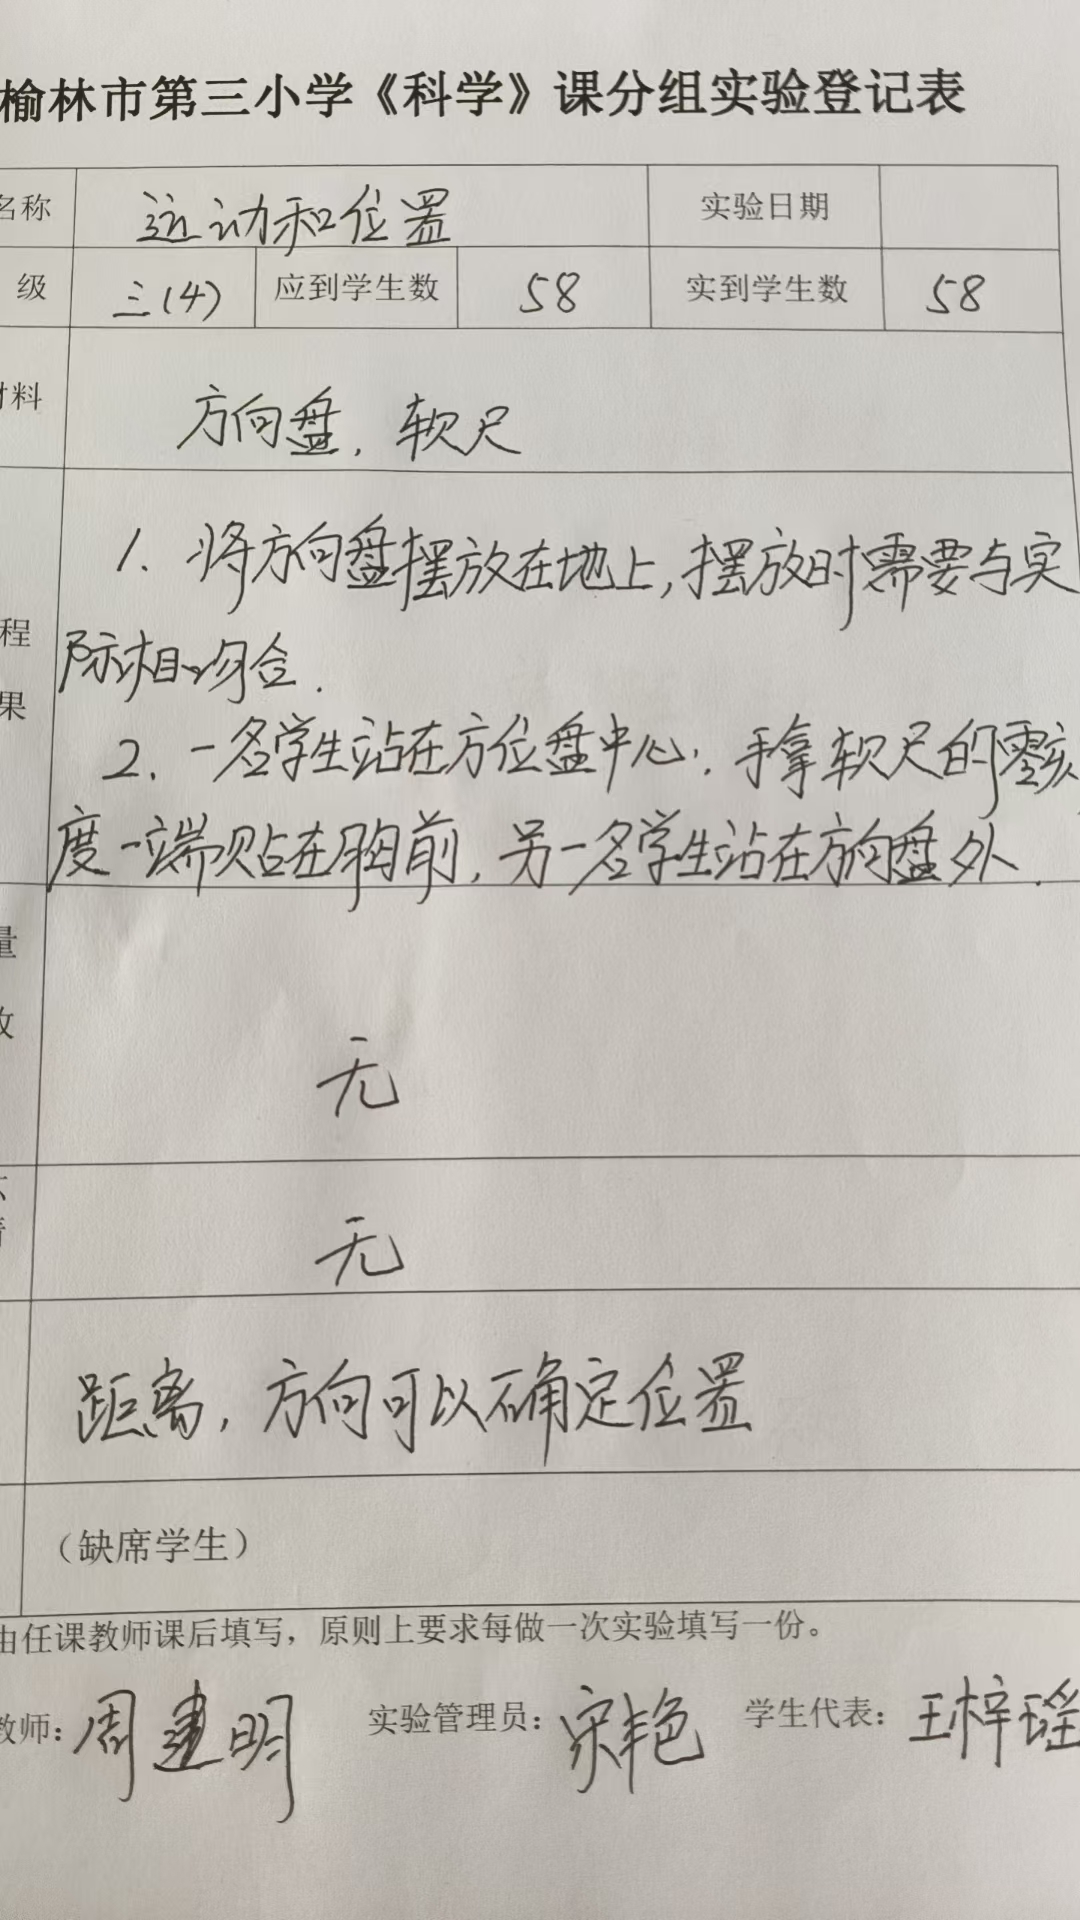 榆林市第三小学《科学》课分组实验登记表
名称 运动和位置 实验日期
级 三(4) 应到学生数 58 实到学生数 58
材料 方向盘，软尺
1. 将方向盘摆放在地上,摆放时需要与实
程 际相吻合.
果
2. 一名学生站在方位盘中心. 手拿软尺的零刻
度一端贴在胸前, 另一名学生站在方向盘外.
量
无
无
距离, 方向可以确定位置
（缺席学生）
由任课教师课后填写，原则上要求每做一次实验填写一份。
教师: 周建明 实验管理员: 宋艳 学生代表: 王梓瑶